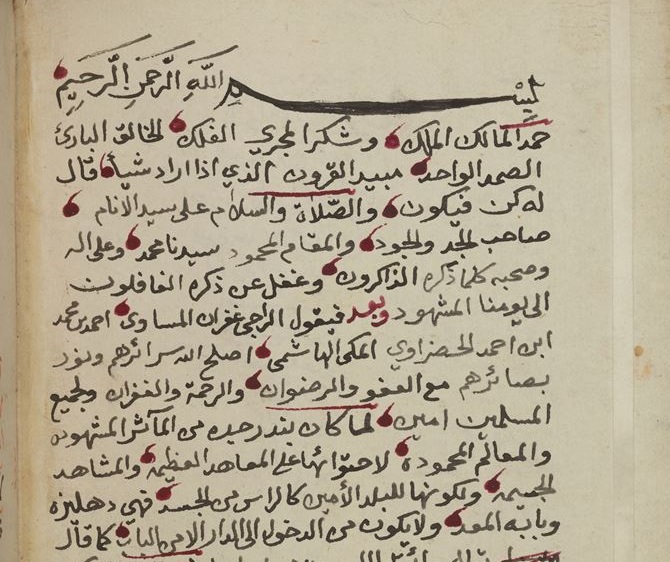 بسم الله الرحمن الرحيم
حمدا لمالك الملك وشكرا لمجري الفلك الخالق البارئ
الصمد الواحد مبيد القرون الذي اذا اراد شيأ قال
له كن فيكون والصلاة والسلام على سيد الانام
صاحب المجد والجود والمقام المحمود سيدنا محمد وعلى اله
وصحبه كلما ذكره الذاكرون وغفل عن ذكره الغافلون
الى يومنا المشهود وبعد فيقول الراجي غفران المساوى احمد بن محمد
ابن احمد الحضراوي المكي الهاشمي اصلح الله سرائرهم ونور
بصائرهم مع العفو والرضوان والرحمة والغفران ولجميع
المسلمين امين لما كان بندر جده من المآثر المشهوده
والمعالم المحمودة لاحتوائها على المعاهد العظيمه والمشاهد
الجسيمه ولكونها للبلد الأمين كالراس من الجسد فهي دهليزه
وبابه المعد ولا يكون من الدخول الى الدار الا من الباب كما قال